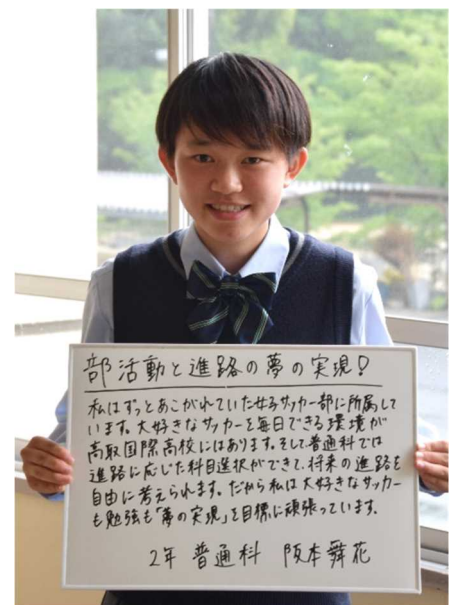 部活動と進路の夢の実現!
私はずっとあこがれていた女子サッカー部に所属して
います。大好きなサッカーを毎日できる環境が
高取国際高校にはあります。そして普通科では
進路に応じた科目選択ができて、将来の進路を
自由に考えられます。だから私は大好きなサッカー
も勉強も「夢の実現」を目標に頑張っています。
2年 普通科 阪本舞花